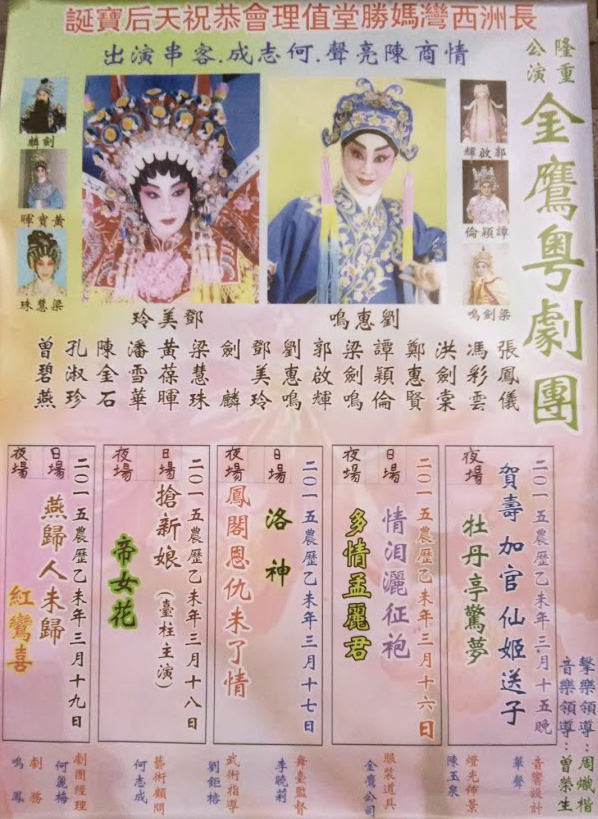 長洲西灣媽勝堂值理會恭祝天后寶誕
情商陳亮聲.何志成.客串演出
隆重
公演
金鷹粵劇團
劍麟
黃寶暉
梁慧珠
郭啟輝
譚穎倫
梁劍鳴
鄧美玲
劉惠鳴
張鳳儀
馮彩雲
洪劍棠
鄭惠賢
譚穎倫
梁劍鳴
郭啟輝
劉惠鳴
鄧美玲
劍麟
梁慧珠
黃葆暉
潘雪華
陳金石
孔淑珍
曾碧燕
二〇一五農歷乙未年三月十五晚
夜場
賀壽 加官 仙姬送子
牡丹亭驚夢
二〇一五農歷乙未年三月十六日
日場
情泪灑征袍
夜場
多情孟麗君
二〇一五農歷乙未年三月十七日
日場
洛神
夜場
鳳閣恩仇未了情
二〇一五農歷乙未年三月十八日
日場
搶新娘(臺柱主演)
夜場
帝女花
二〇一五農歷乙未年三月十九日
日場
燕歸人未歸
夜場
紅鸞喜
擊樂領導:周熾楷
音樂領導:曾榮生
音響設計
華聲
燈光佈景
陳玉泉
服裝道具
金鷹公司
舞臺監督
李曉莉
武術指導
劉鉅榕
藝術顧問
何志成
劇團經理
何麗梅
劇務
鳴鳳